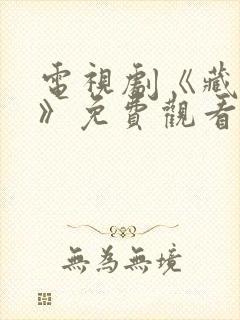 電視劇《藏
》免費觀看
無為無境